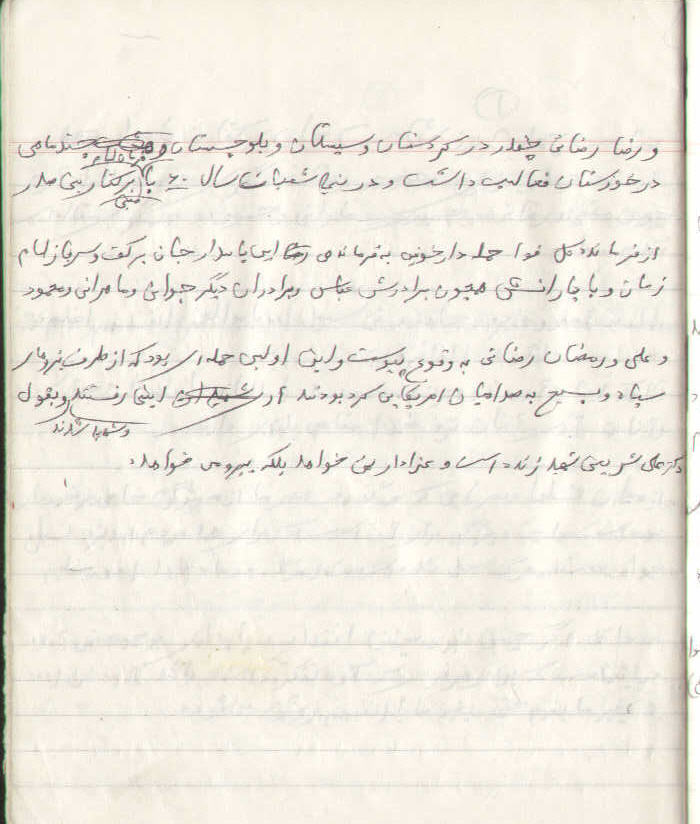 و رضا رضائی چقدر در کردستان و سیستان و بلوچستان و چند ماهی
در خوزستان فعالیت داشت و در نیمه شعبان سال ۶۰ با برکناری بنی صدر
خمینی
از فرماندهی کل قوا حمله دارخوین به فرماندهی رضا این پاسدار جان برکف و سرباز امام
زمان و با جانفشانی همچون برادرش عباس و برادران دیگر چون و ماهرانی و محمود
و علی و رمضان رضائی به وقوع پیوست و این اولین حمله ای بود که از طرف نیروهای
سپاه و بسیج به صدامیان امریکایی کرده بودند اینها رفتند و بقول
و شهید شدند
دکتر علی شریعتی شهید زنده است و عزادار نمی خواهد بلکه پیرو می خواهد.